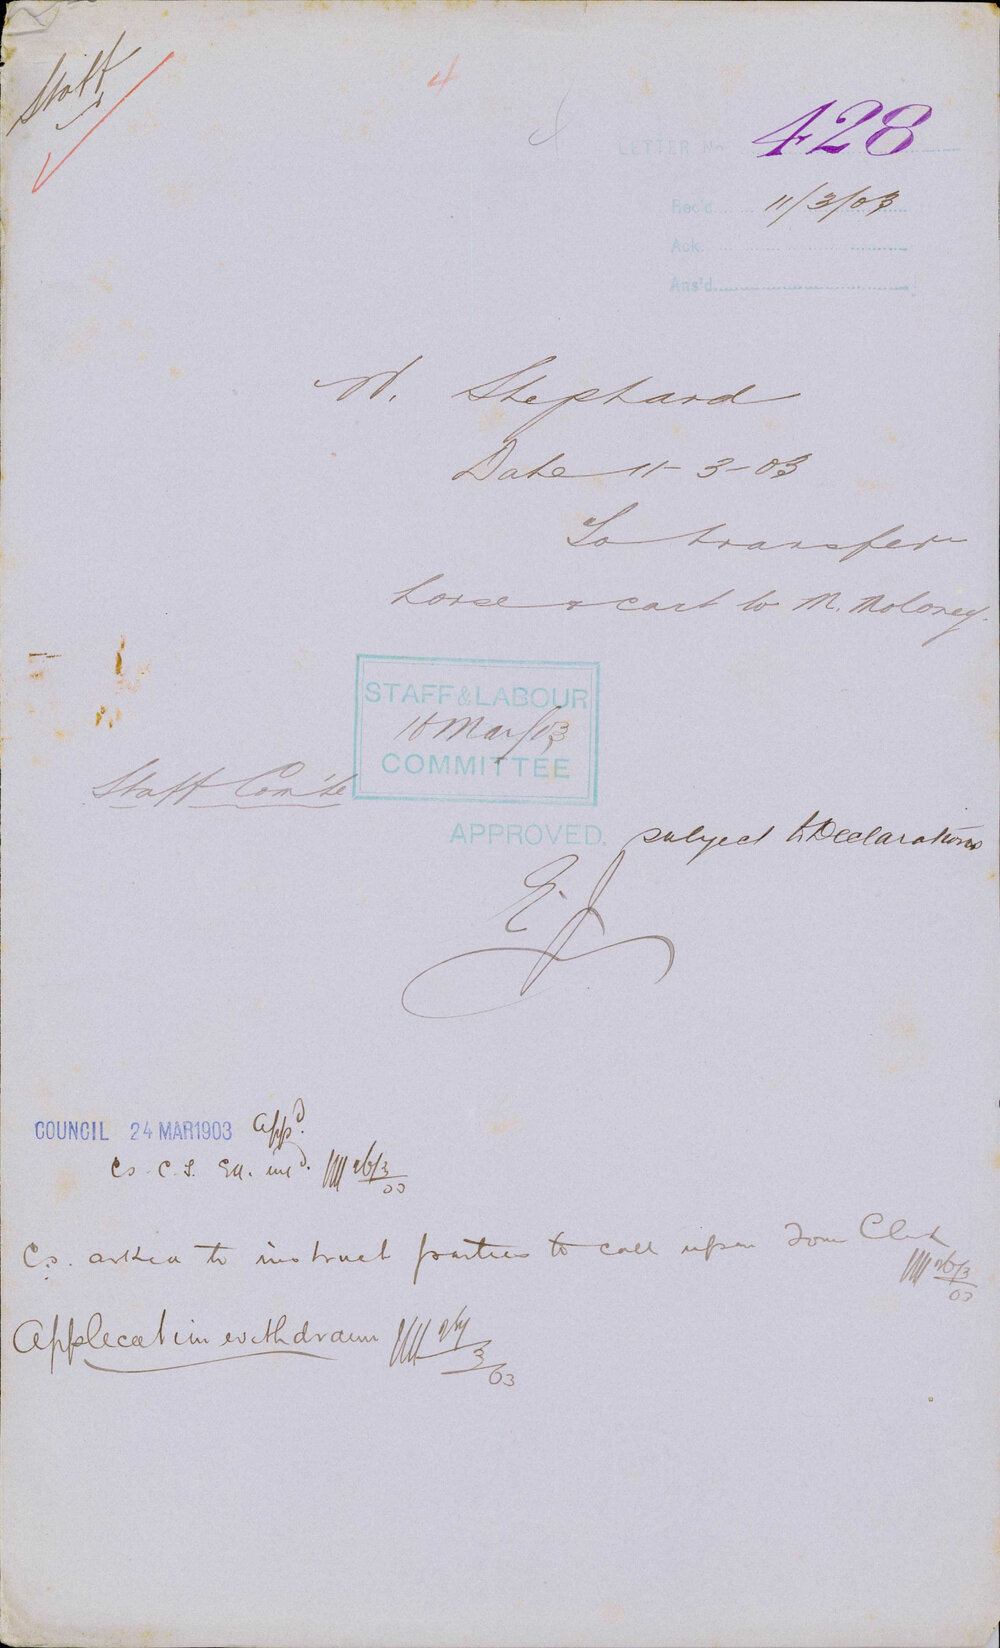 Staff
4
LETTER No 428
Rec'd 11/3/03
Ack.
Ans'd
W. Shephard
Date 11-3-03
To transfer
horse & cart to M. Moloney.
STAFF & LABOUR
18 Mar/03
COMMITTEE
Staff Com'te
APPROVED. subject to Declarations
E.J.
COUNCIL 24 MAR 1903 Appd.
Cs. C.S. infd. 26/3/03
C.S. asked to instruct parties to call upon Town Clerk
26/3/03
Application withdrawn
3/03